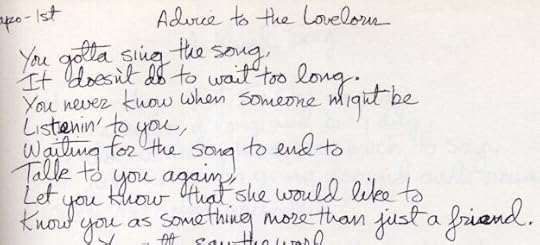 Advice to the Lovelorn
You gotta sing the song,
It doesn't do to wait too long.
You never know when someone might be
Listenin' to you,
Waiting for the song to end to
Talk to you again,
Let you know that she would like to
Know you as something more than just a friend.
say the word